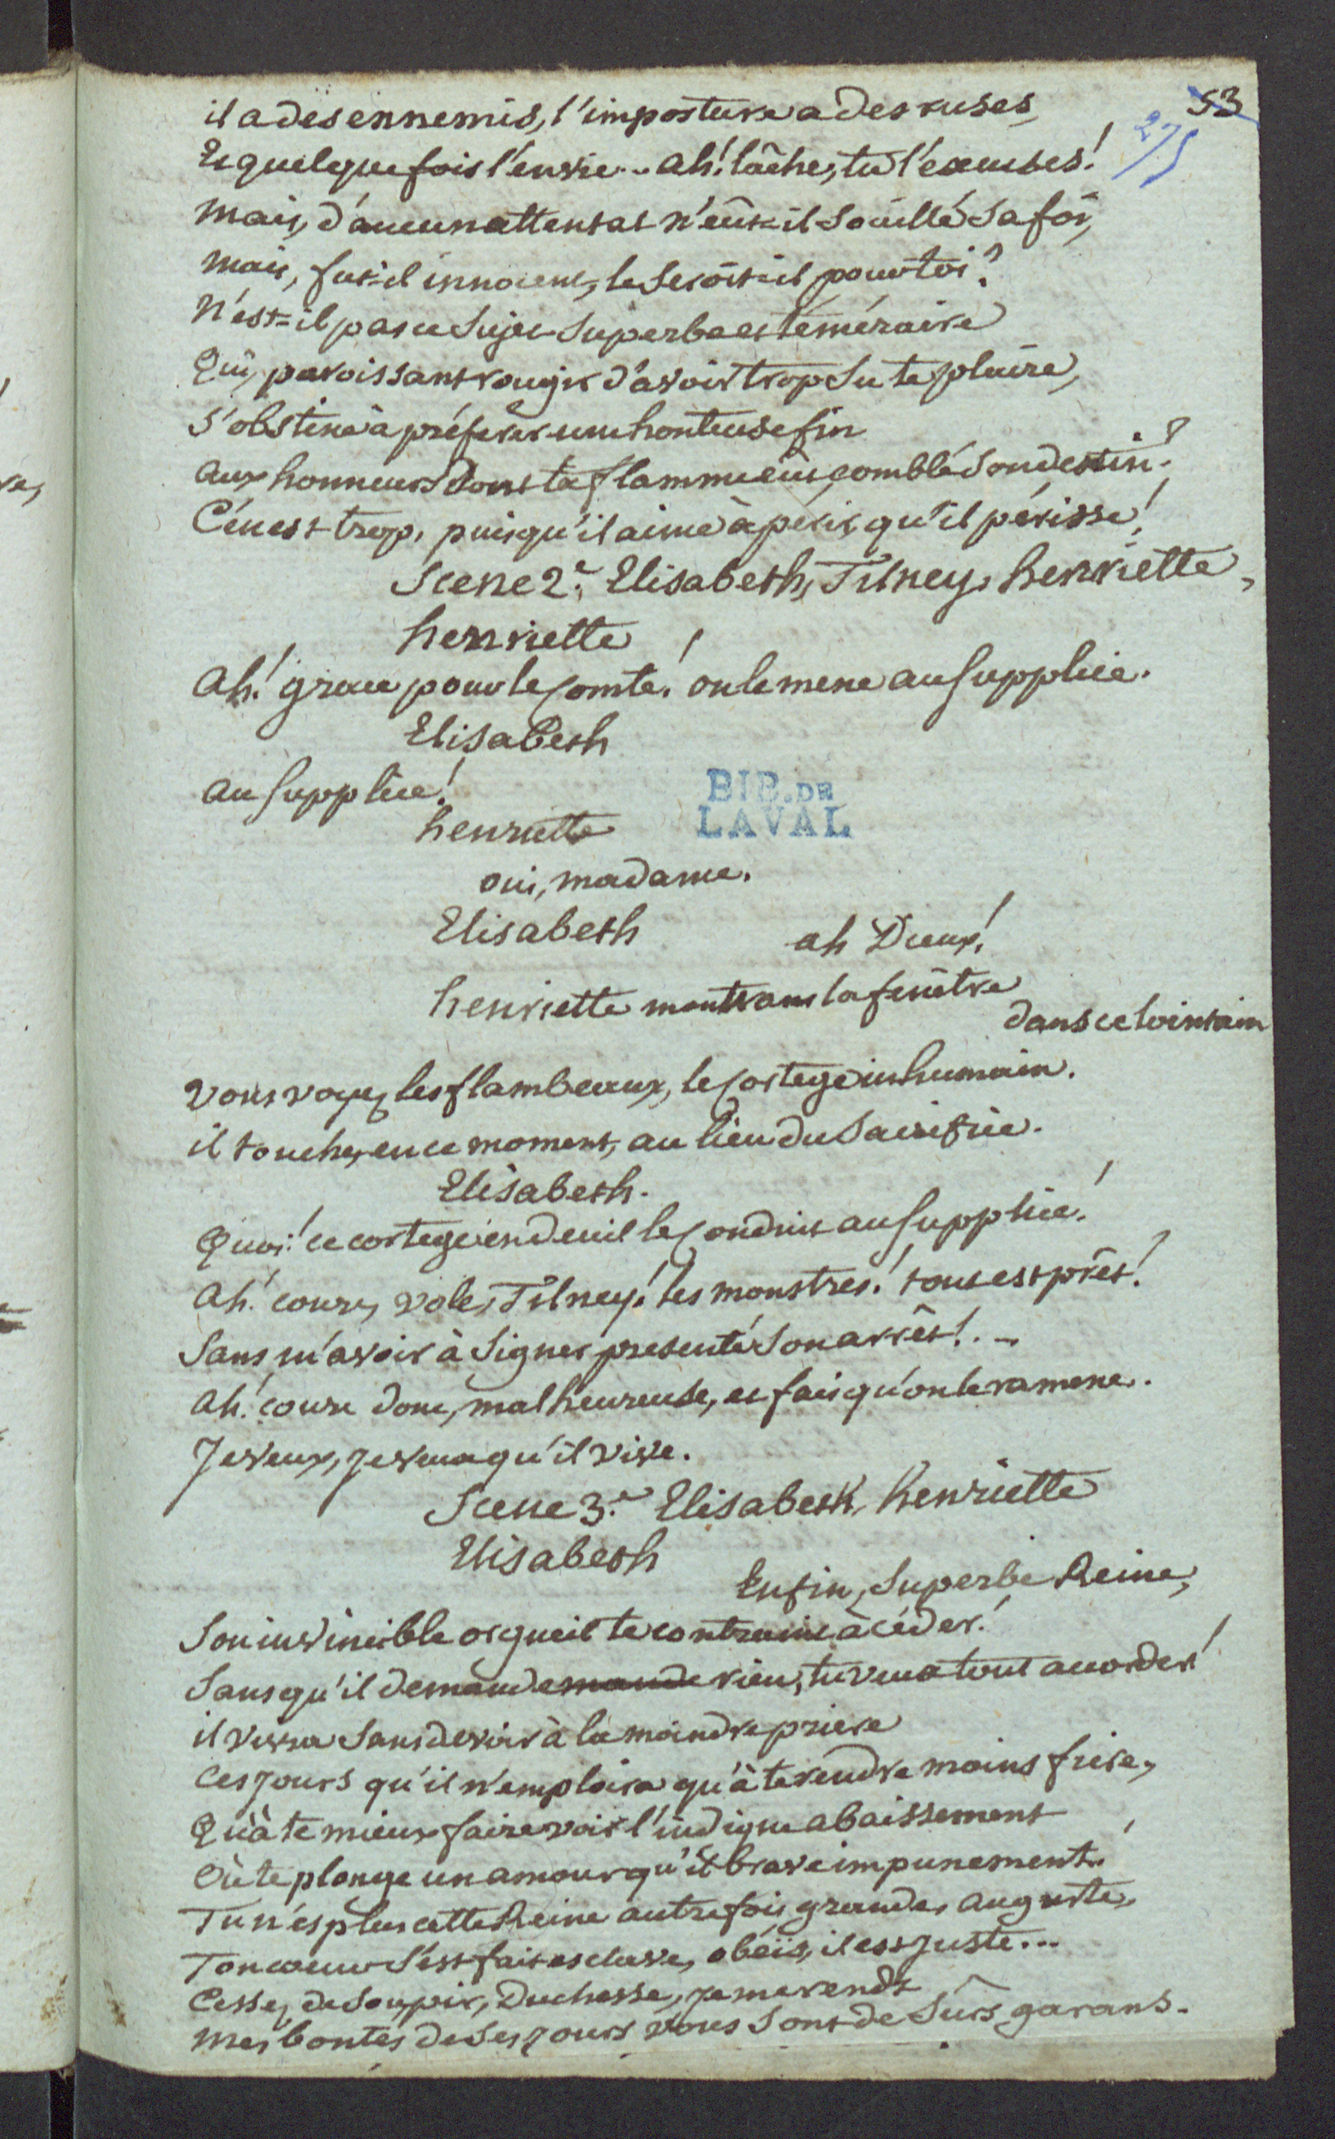 53
275
il a des ennemis, l'imposture a des ruses,
Et quelquefois l'envie... ah! lâche, tu l'excuses!
Mais, d'aucun attentat n'eût-il souillé sa foi,
Mais, fut-il innocent, le seroit-il pour toi?
N'est-il pas ce sujet superbe et téméraire
Qui, paroissant rougir d'avoir trop su te plaire,
S'obstine à préferer une honteuse fin
aux honneurs dont ta flamme eût comblé son destin?
C'en est trop, puisqu'il aime à perir, qu'il périsse!
Scene 2.e Elisabeth, Tilney, henriette,
henriette
ah! grace pour le Comte! on le mene au supplice.
Elisabeth
au supplice!
henriette
oui, madame.
Elisabeth
ah Dieux!
henriette montrant la fenêtre
dans ce lointain
Vous voyez les flambeaux, le cortege inhumain.
il touche, en ce moment, au lieu du sacrifice.
Elisabeth.
Quoi! ce cortege en deuil le conduit au supplice!
Ah! cours, vole, Tilney! les monstres! tout est prêt!
Sans m'avoir à signer presenté son arrêt!..
Ah! cours donc, malheureuse, et fais qu'on le ramene.
Je veux, je veux qu'il vive.
Scene 3.e Elisabeth, henriette
Elisabeth
Enfin, superbe Reine,
Son invincible orgueil te contraint à céder!
Sans qu'il demande mande rien, tu veux tout accorder!
il vivra sans devoir à la moindre priere
Ces jours qu'il n'emploira qu'à te rendre moins fiere,
Qu'à te mieux faire voir l'indigne abaissement
Où te plonge un amour qu'il brave impunement!
Tu n'es plus cette Reine autrefois grande, auguste,
Ton coeur s'est fait esclave, obéis, il est juste...
Cessez de soupir, Duchesse, je me rends
Mes bontés de ses jours vous sont de sûrs garans.
BIB. DE
LAVAL